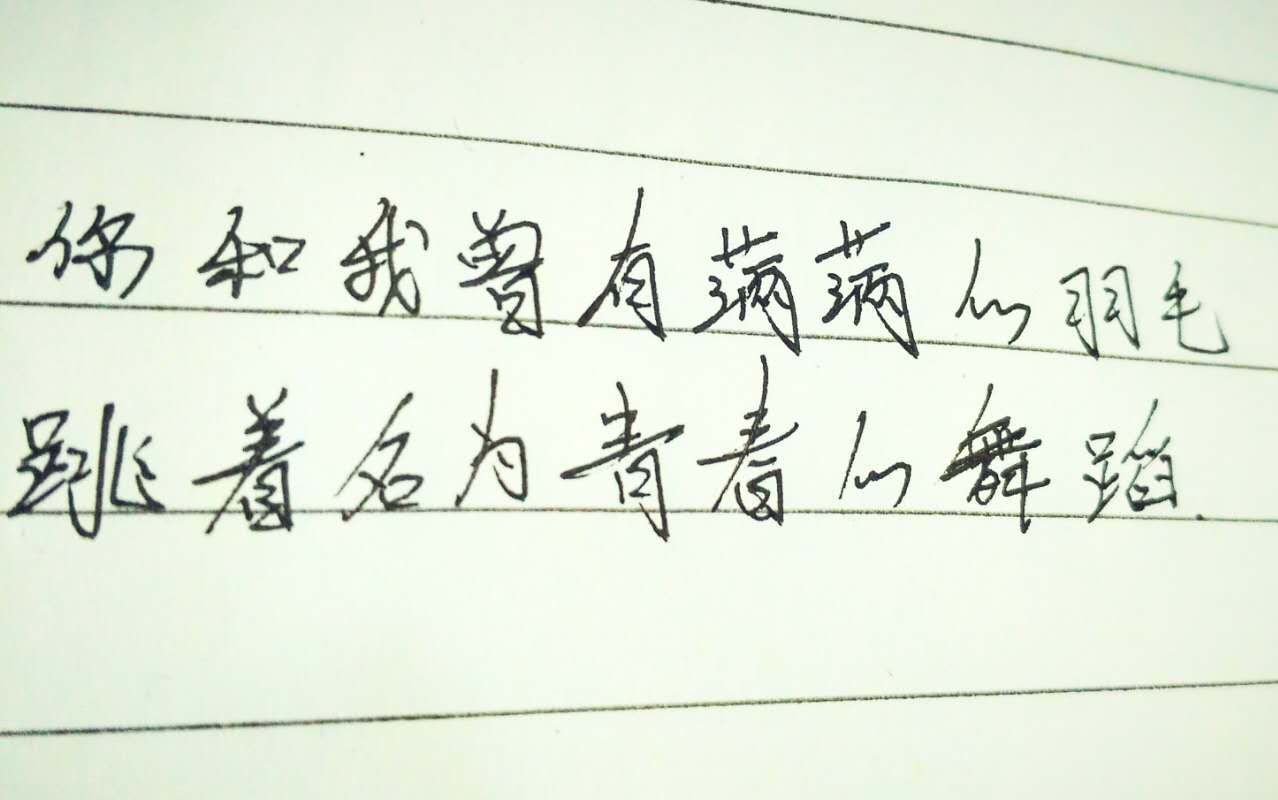 你和我曾有满满的羽毛
跳着名为青春的舞蹈.